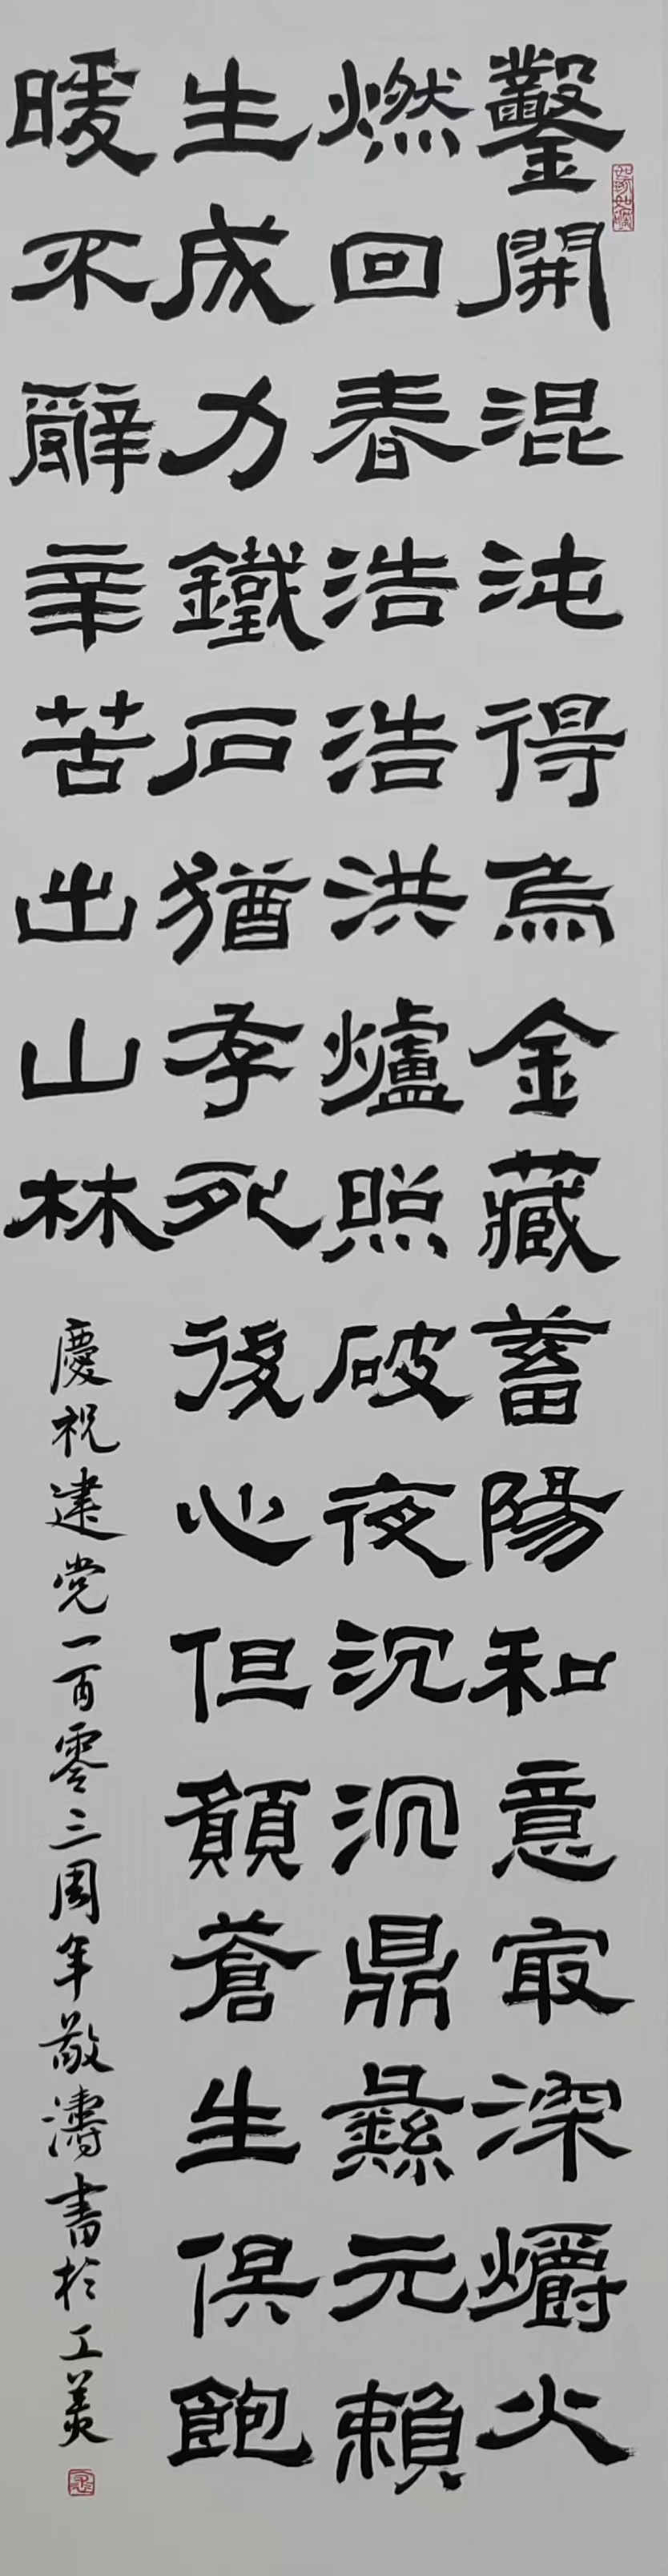 鑿開混沌得烏金藏蓄陽和意最深爝火
燃回春浩浩洪爐照破夜沉沉鼎彝元賴
生成力鐵石猶存死後心但願蒼生俱飽
暖不辭辛苦出山林
慶祝建党一百零三周年敬濤書於工美